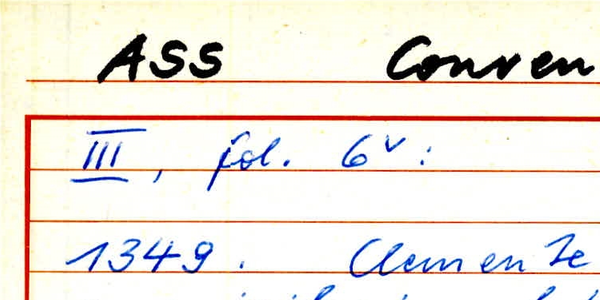 ASS Conven
III, fol. 6v:
1349. Clemente